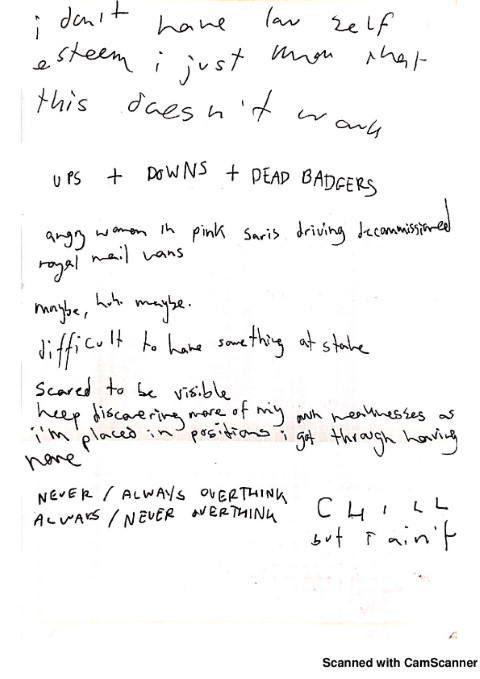 i don't have low self
esteem i just know that
this doesn't work
UPS + DOWNS + DEAD BADGERS
angry women in pink saris driving decommissioned
royal mail vans
maybe, huh. maybe.
difficult to have something at stake
scared to be visible
keep discovering more of my own weaknesses as
i'm placed in positions i got through having
none
NEVER / ALWAYS OVERTHINK
ALWAYS / NEVER OVERTHINK
CHILL
but i ain't
Scanned with CamScanner